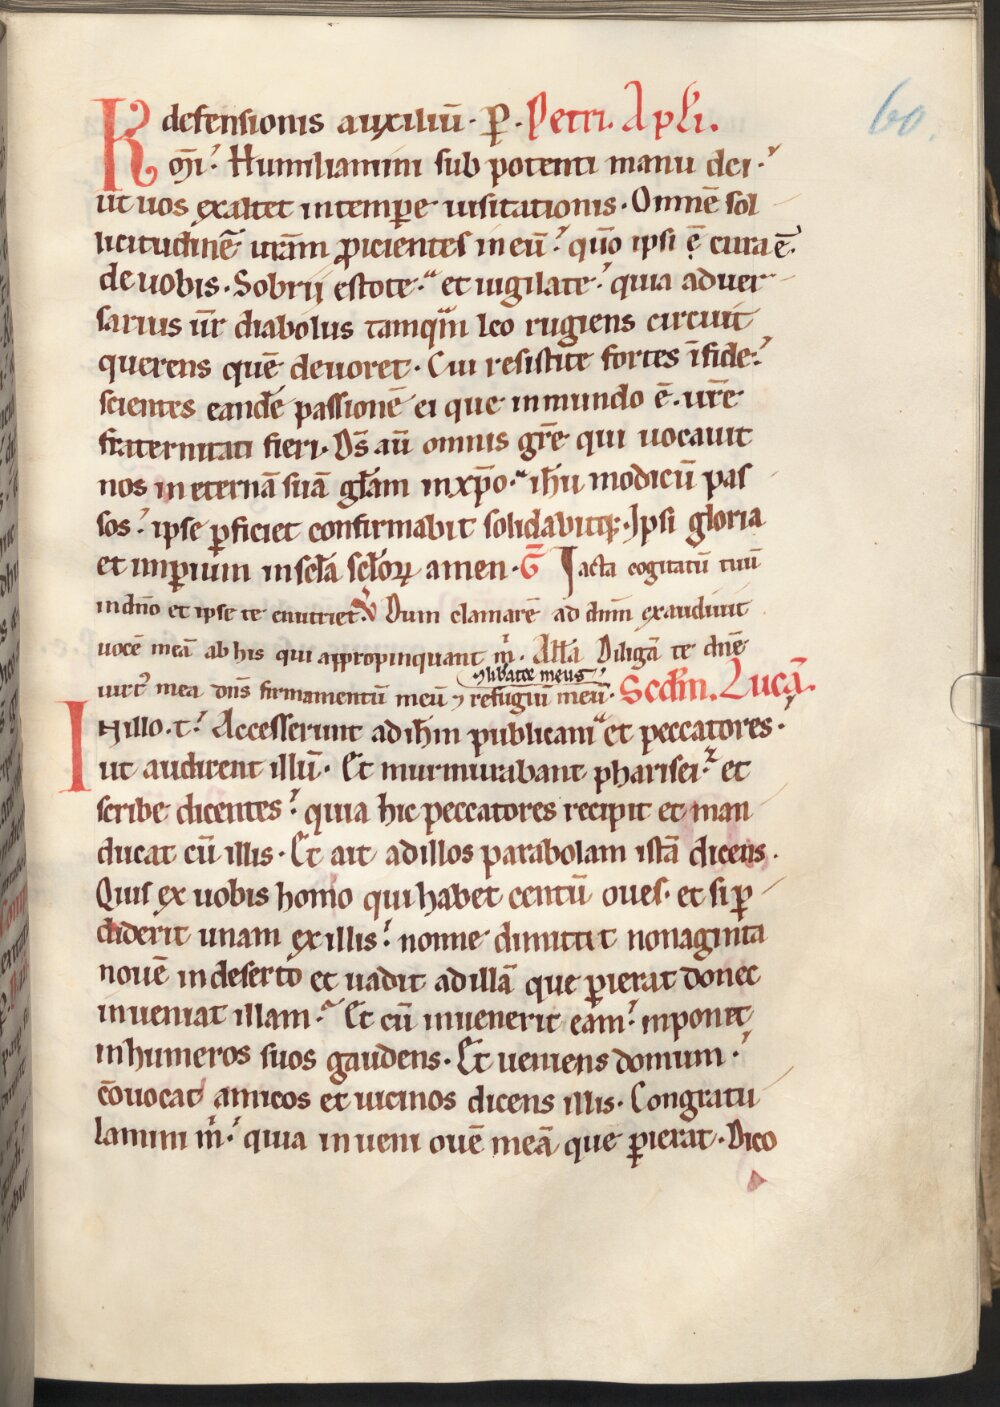 60.
defensionis auxiliū · P̄ · Petri. Apłi.
K mī: Humiliamini sub potenti manu dei ·
ut uos exaltet in temp̄e uisitationis · Omnē sol
licitudinē urām ꝓicientes in eū: quō ipsi ē cura ē.
de uobis · Sobrij estote · et uigilate: quia aduer
sarius ūr diabolus tamqm̄ leo rugiens circuit
querens quē deuoret · Cui resistite fortes ī fide:
scientes eandē passionē ei que in mundo ē · urē
fraternitati fieri · Ds̄ aū omnis grē qui uocauit
nos in eternā suā głam in xp̄o · ihū modicū pas
sos: ipse ꝑficiet confirmabit solidabitqꝫ · Ipsi gloria
et imꝑium in scła scłoꝝ amen · G̅ Iacta cogitatū tuū
in dn̄o et ipse te enutriet V̄ Dum clamarē ad dnm̄ exaudiuit
uocē meā ab his qui appropinquant m̄ · Ałła Diligā te dn̄e
⁊ libatoꝛ meus
uirtꝰ mea dn̄s firmamentū meū ⁊ refugiū meū · Scdm̄. Lucā.
IN illo · t: Accesserunt ad ihm̄ publicani et peccatores ·
ut audirent illū · Et murmurabant pharisei: et
scribe dicentes: quia hic peccatores recipit et man
ducat cū illis · Et ait ad illos parabolam istā dicens ·
Quis ex uobis homo qui habet centū oues · et si ꝑ
diderit unam ex illis: nonne dimittit nonaginta
nouē in deserto et uadit ad illā que ꝑierat donec
inueniat illam · Et cū inuenerit eam: inponit
in humeros suos gaudens · Et ueniens domum ·
cōuocat amicos et uicinos dicens illis · Congratu
lamini m̄: quia inueni ouē meā que ꝑierat · Dico